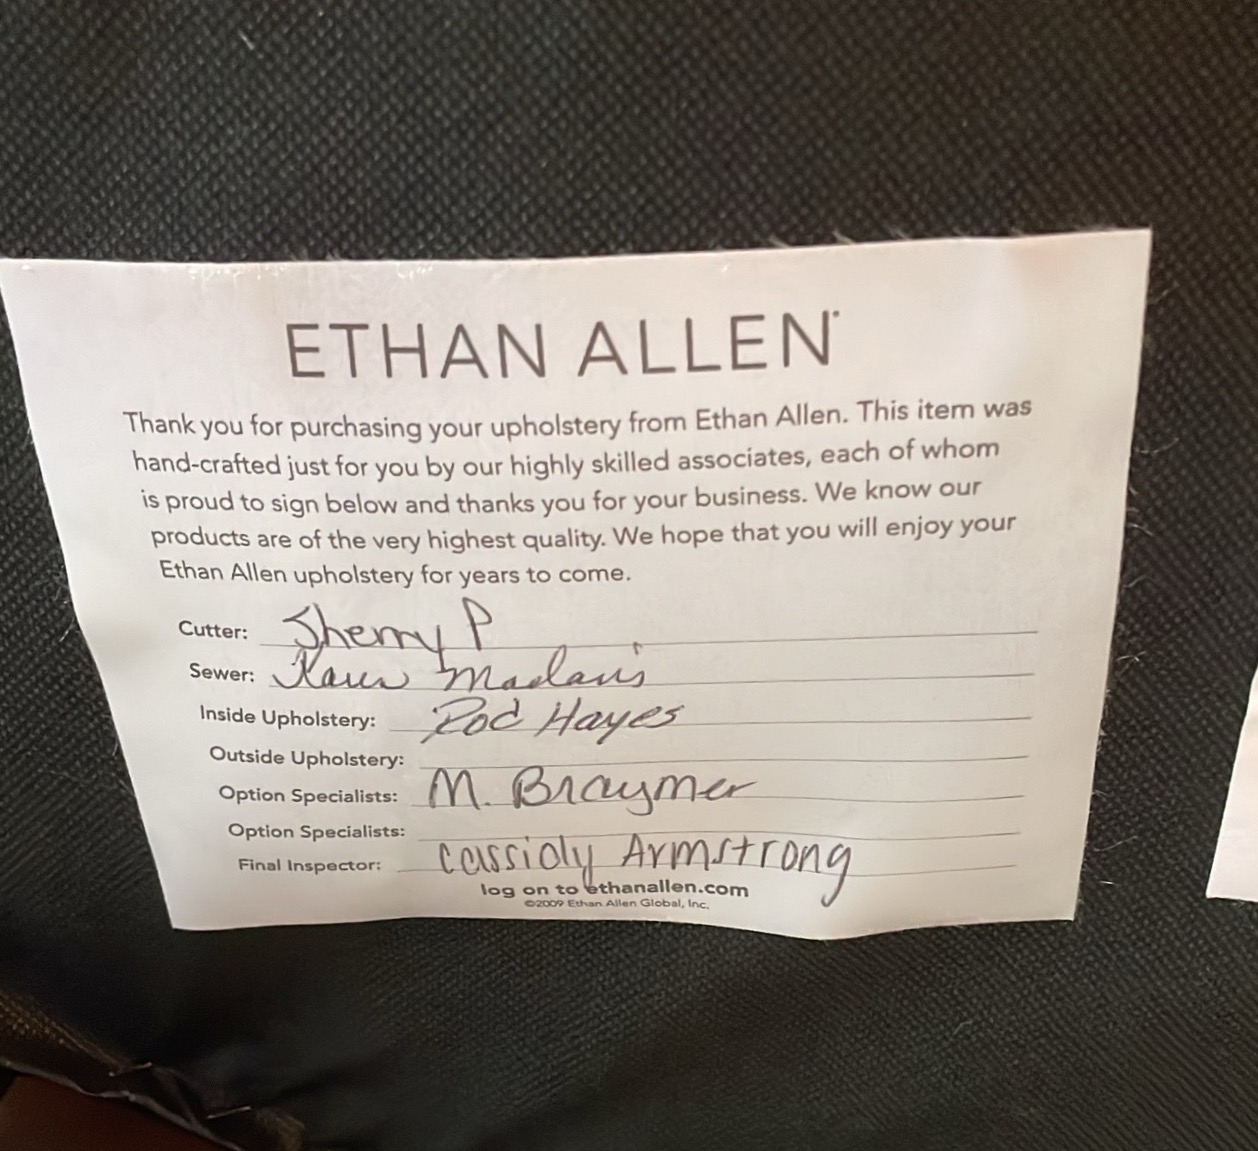 ETHAN ALLEN
Thank you for purchasing your upholstery from Ethan Allen. This item was
hand-crafted just for you by our highly skilled associates, each of whom
is proud to sign below and thanks you for your business. We know our
products are of the very highest quality. We hope that you will enjoy your
Ethan Allen upholstery for years to come.
Cutter: Sherry P
Sewer:
Inside Upholstery: Rod Hayes
Outside Upholstery:
Option Specialists: M. Braymer
Option Specialists:
Final Inspector: Cassidy Armstrong
log on to ethanallen.com
©2009 Ethan Allen Global, Inc.